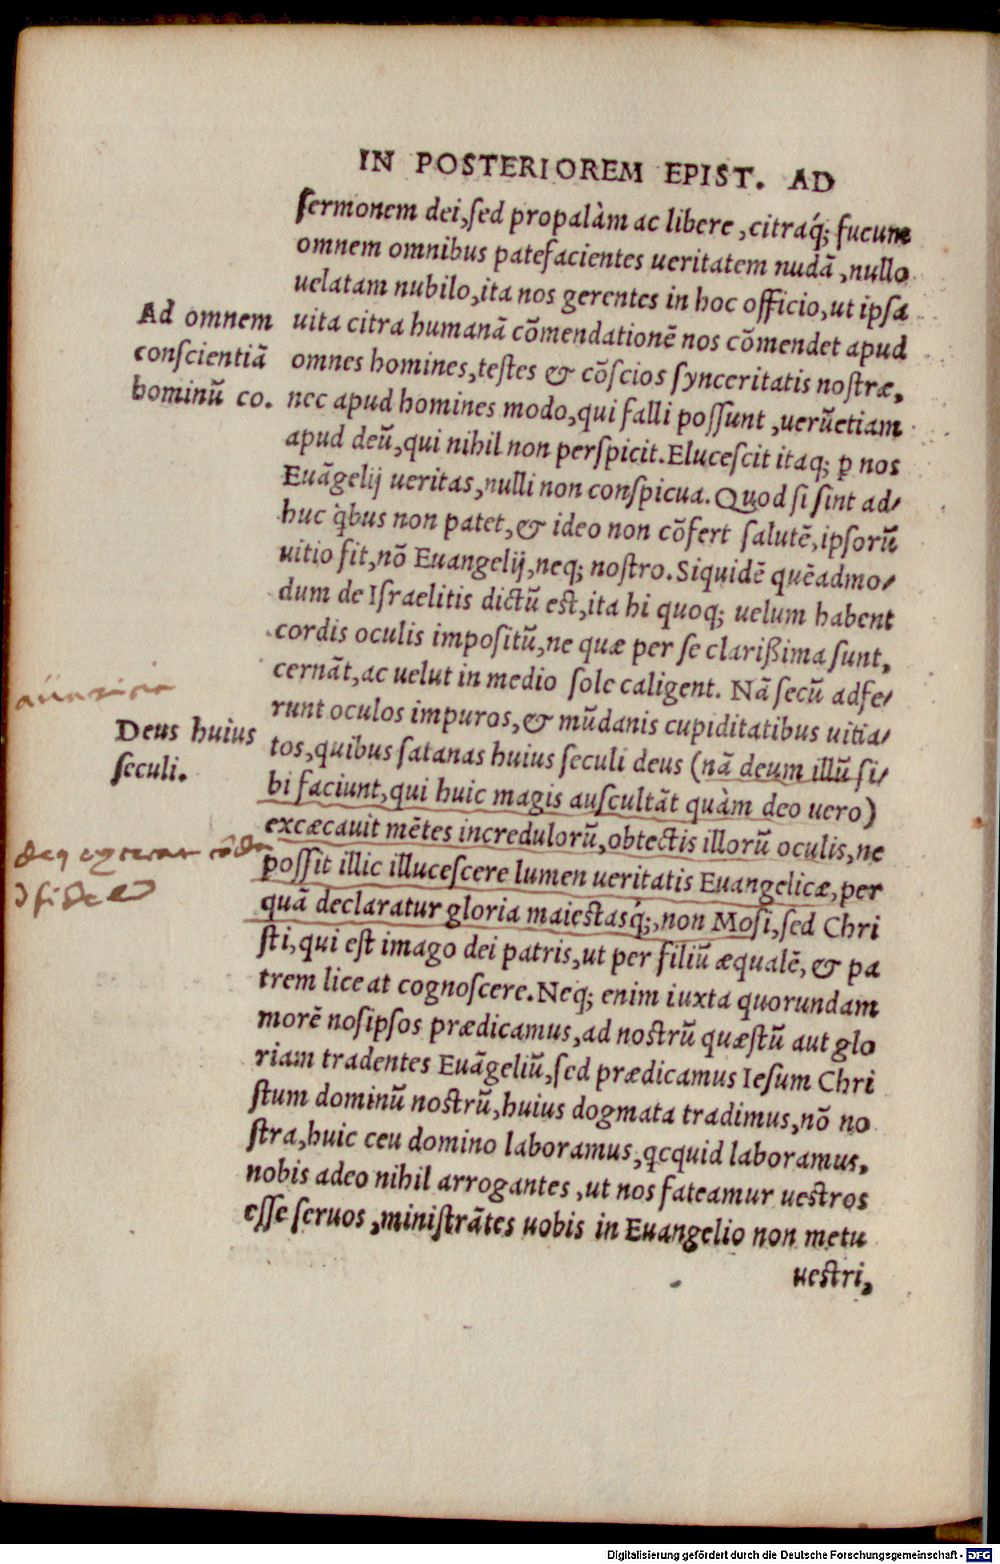 IN POSTERIOREM EPIST. AD
sermonem dei, sed propalàm ac libere, citraq́; fucum
omnem omnibus patefacientes ueritatem nudã, nullo
uelatam nubilo, ita nos gerentes in hoc officio, ut ipsa
Ad omnem
conscientiã
hominũ co.
uita citra humanã cõmendationẽ nos cõmendet apud
omnes homines, testes & cõscios synceritatis nostræ,
nec apud homines modo, qui falli possunt, uerũetiam
apud deũ, qui nihil non perspicit. Elucescit itaq; ꝑ nos
Euãgelij ueritas, nulli non conspicua. Quod si sint ad/
huc q̀bus non patet, & ideo non cõfert salutẽ, ipsorũ
uitio fit, nõ Euangelij, neq; nostro. Siquidẽ quẽadmo/
dum de Israelitis dictũ est, ita hi quoq; uelum habent
cordis oculis impositũ, ne quæ per se clarißima sunt,
cernãt, ac uelut in medio sole caligent. Nã secũ adfe/
runt oculos impuros, & mũdanis cupiditatibus uitia/
Deus huius
seculi.
tos, quibus satanas huius seculi deus (nã deum illũ si/
bi faciunt, qui huic magis auscultãt quàm deo uero)
excæcauit mẽtes incredulorũ, obtectis illorũ oculis, ne
possit illic illucescere lumen ueritatis Euangelicæ, per
quã declaratur gloria maiestasq́;, non Mosi, sed Chri
sti, qui est imago dei patris, ut per filiũ æqualẽ, & pa
trem liceat cognoscere. Neq; enim iuxta quorundam
morẽ nosipsos prædicamus, ad nostrũ quæstũ aut glo
riam tradentes Euãgeliũ, sed prædicamus Iesum Chri
stum dominũ nostrũ, huius dogmata tradimus, nõ no
stra, huic ceu domino laboramus, qcquid laboramus,
nobis adeo nihil arrogantes, ut nos fateamur uestros
esse seruos, ministrãtes uobis in Euangelio non metu
uestri,
Digitalisierung gefördert durch die Deutsche Forschungsgemeinschaft - DFG